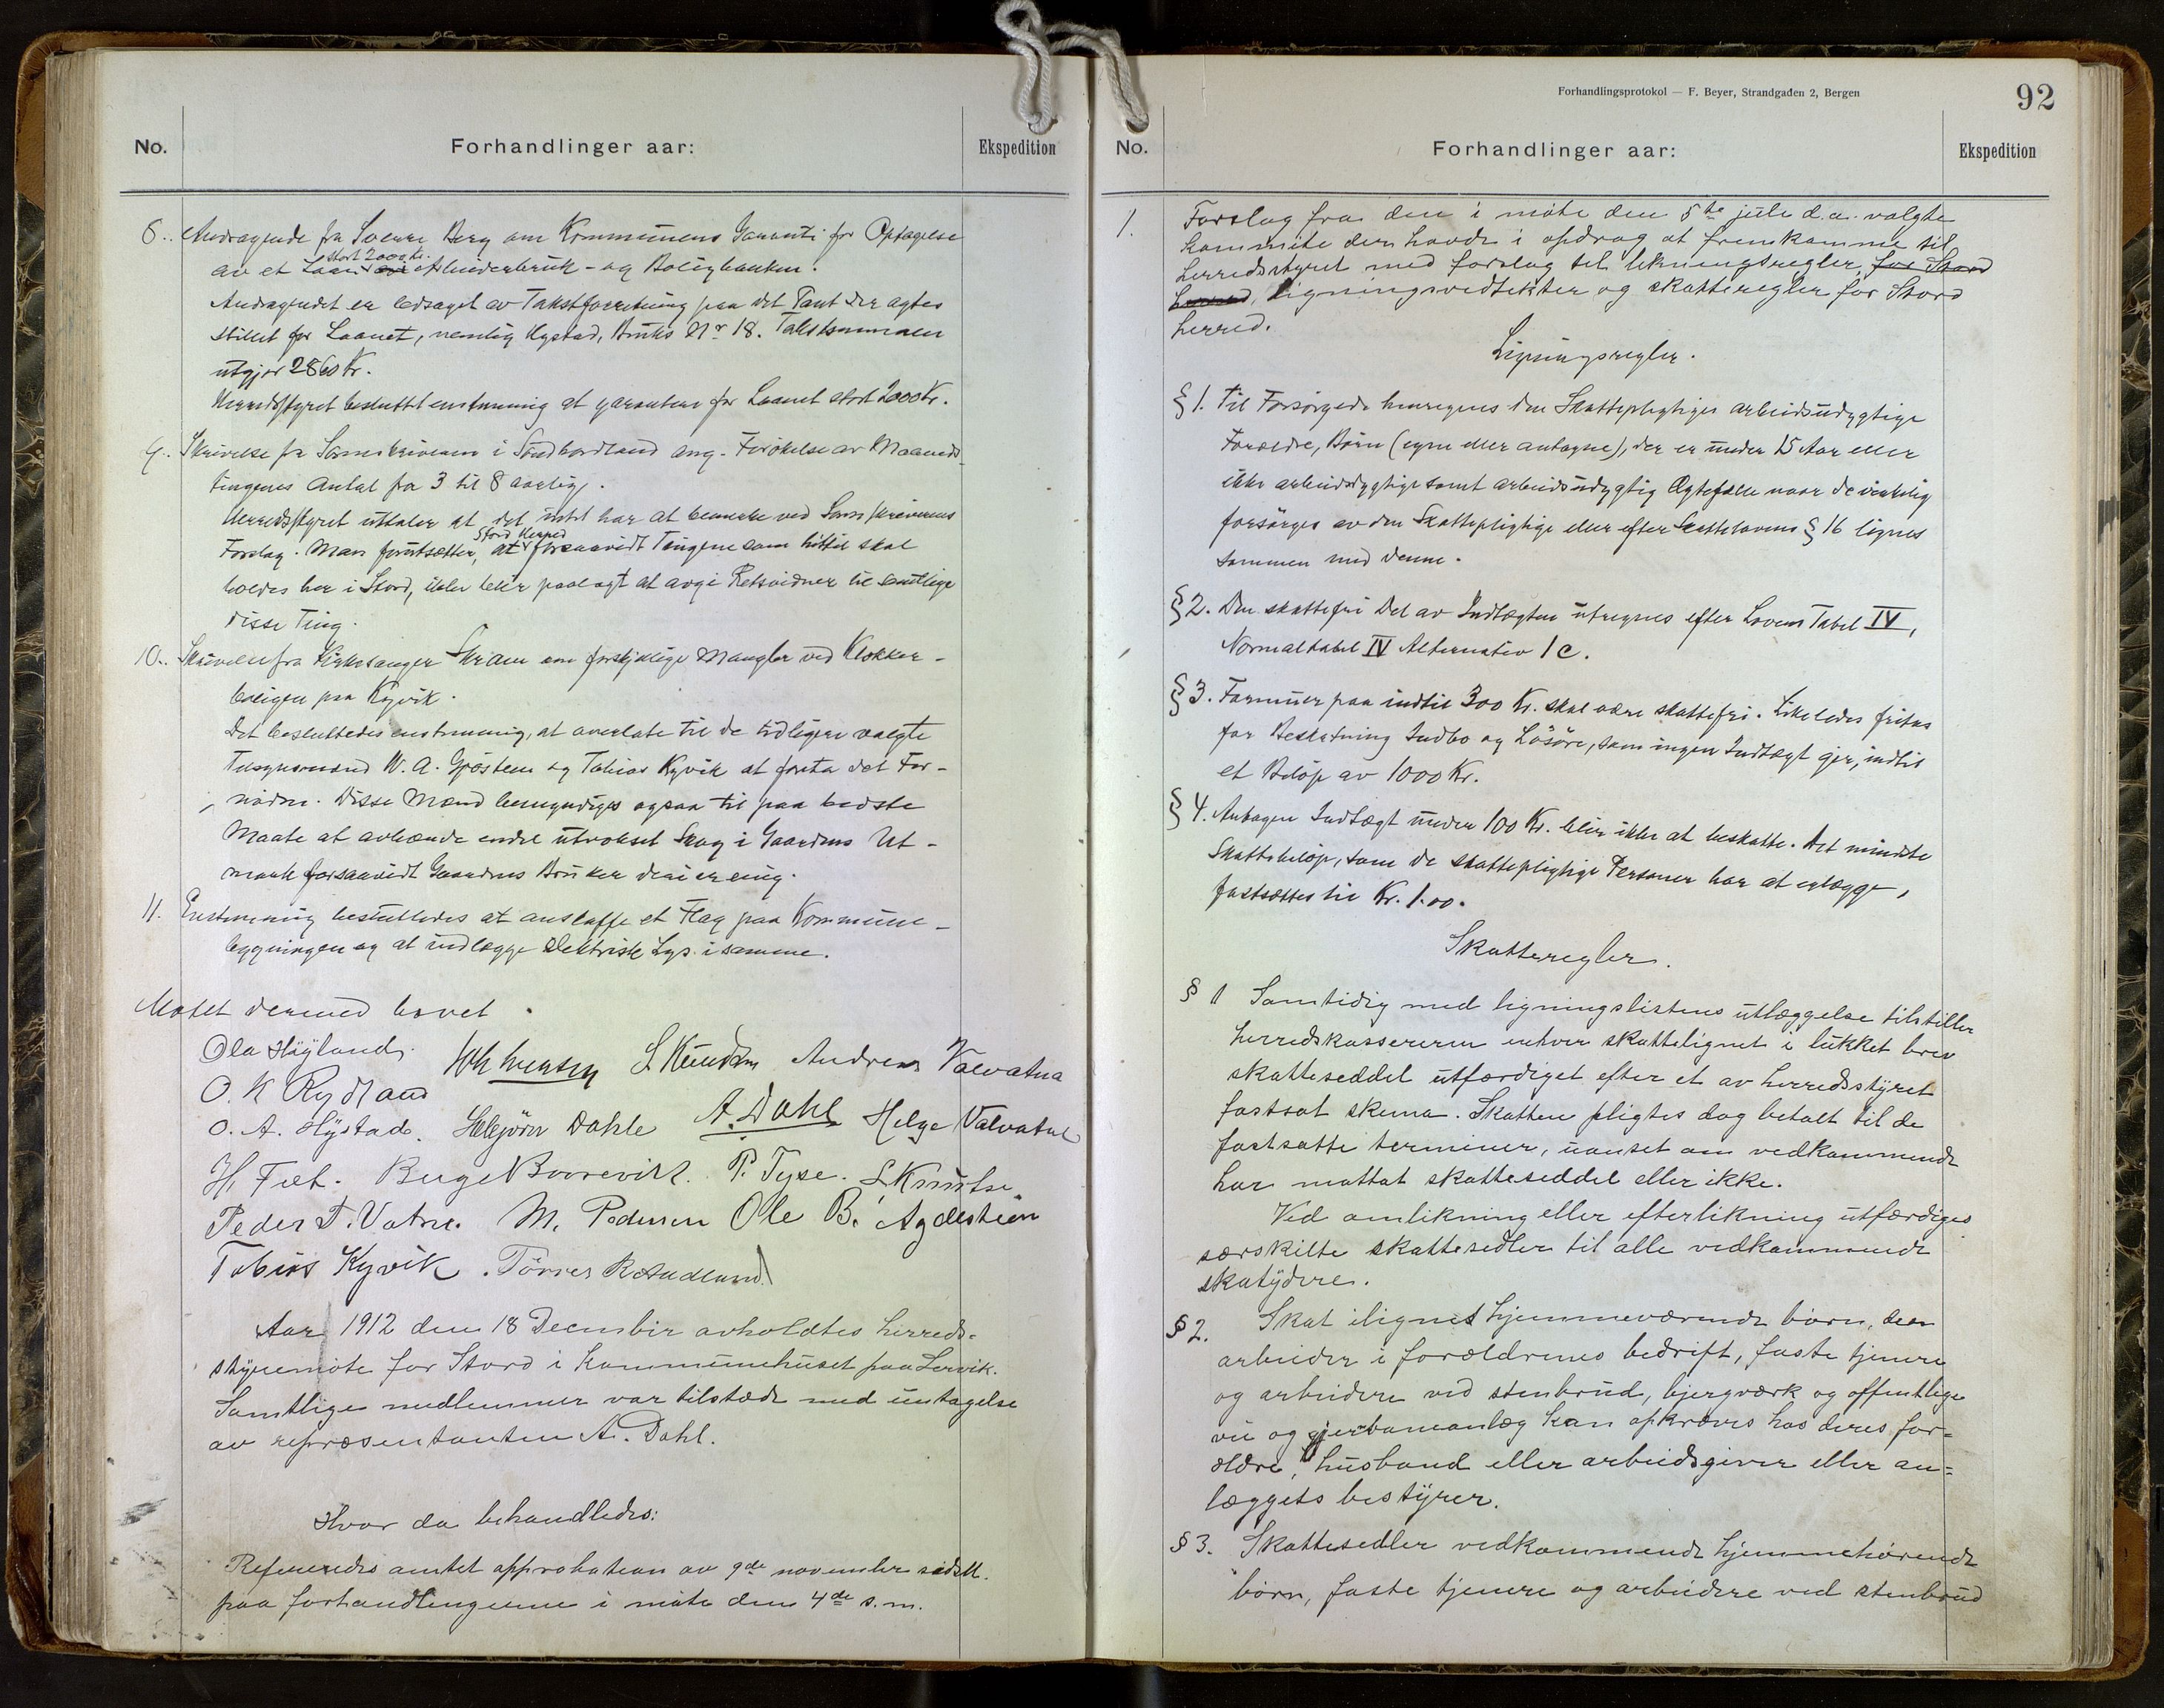 No.
Forhandlinger aar:
Ekspedition
8. Andragende fra Sverre Berg om Kommunens Garanti for Optagelse
stort 2000 kr.
av et Laan i Arbeiderbruk- og Boligbanken.
Andragendet er ledsaget av Takstforretning paa det Pant der agtes
stillet for Laanet, nemlig Hystad, Bruks Nr. 18. Takstsummen
utgjør 2860 Kr.
Herredsstyret besluttet enstemmig at garantere for Laanet stort 2000 Kr.
9. Skrivelse fra Sorenskriveren i Søndhordland ang. Forøkelse av Maaneds-
tingenes Antal fra 3 til 8 aarlig.
Herredsstyret uttaler at det intet har at bemerke ved Sorenskriverens
Stord Herred
Forslag. Man forutsætter, at forsaavidt Tingene som hittil skal
holdes her i Stord, ikke blir paalagt at avgi Retsvidner til samtlige
disse Ting.
10. Skrivelse fra Kirkesanger Skram om forskjellige Mangler ved Klokker-
boligen paa Kyvik.
Det besluttedes enstemmig, at overlate til de tidligere valgte
Tilsynsmænd W. A. Gjøsteen og Tobias Kyvik at foreta det For-
nødne. Disse Mænd bemyndiges ogsaa til paa bedste
Maate at avhænde endel utvokset Skog i Gaardens Ut-
mark forsaavidt Gaardens Bruker deri er enig.
11. Enstemmig besluttedes at anskaffe et Flag paa Kommune-
bygningen og at indlægge Elektrisk Lys i samme.
Møtet dermed hævet.
Ola Høyland. Joh Iversen S Knudsen Andreas Valvatna
O. K Rydland
O. A. Hystad. Asbjørn Dahle A. Dahl Helge Valvatne
H. Fæt. Birge Borrevik. P. Tyse. S Knutsen.
Peder T. Vatne. M. Pedersen Ole B. Agdesteen
Tobias Kyvik. Tørres R Aadland
Aar 1912 den 18 December avholdtes herreds-
styremøte for Stord i kommunehuset paa Lervik.
Samtlige medlemmer var tilstæde med undtagelse
av repræsentanten A. Dahl.
Hvor da behandledes:
Refereredes amtets approbation av 9de november sidstl.
paa forhandlingerne i møte den 4de s.m.
Forhandlingsprotokol — F. Beyer, Strandgaden 2, Bergen
92
No.
Forhandlinger aar:
Ekspedition
1. Forslag fra den i møte den 5te juli d.a. valgte
kommite der havde i opdrag at fremkomme til
herredsstyret med forslag til likningsregler, for Stord
herred, ligningsvedtekter og skatteregler for Stord
herred.
Ligningsregler.
§ 1. Til Forsørgede henregnes den Skattepligtiges arbeidsudygtige
Forældre, Børn (egne eller antagne), der er under 15 Aar eller
ikke arbeidsdygtige samt arbeidsudygtig Ægtefælle naar de virkelig
forsørges av den Skattepligtige eller efter Skattelovens § 16 lignes
sammen med denne.
§ 2. Den skattefri Del av Indtægten utregnes efter Lovens Tabel IV,
Normaltabel IV Alternativ 1 c.
§ 3. Formuer paa indtil 300 Kr. skal være skattefri. Likeledes fritas
for Beskatning Indbo og Løsøre, som ingen Indtægt gir, indtil
et Beløp av 1000 Kr.
§ 4. Antagen Indtægt under 100 Kr. blir ikke at beskatte. Det mindste
Skattebeløp, som de skattepligtige Personer har at erlægge,
fastsættes til Kr. 1.00.
Skatteregler.
§ 1 Samtidig med ligningslistens utlæggelse tilstiller
herredskassereren enhver skattelignet i lukket brev
skatteseddel utfærdiget efter et av herredsstyret
fastsat skema. Skatten pligtes dog betalt til de
fastsatte terminer, uanset om vedkommende
har mottat skatteseddel eller ikke.
Ved omlikning eller efterlikning utfærdiges
særskilte skattesedler til alle vedkommende
skatydere.
§ 2. Skat ilignet hjemmeværende børn, der
arbeider i forældrenes bedrift, faste tjenere
og arbeidere ved stenbrud, bjergværk og offentlige
vei og jernbaneanlæg kan opkræves hos deres for-
ældre, husbond eller arbeidsgiver eller an-
læggets bestyrer.
§ 3. Skattesedler vedkommende hjemmehørende
børn, faste tjenere og arbeidere ved stenbrud